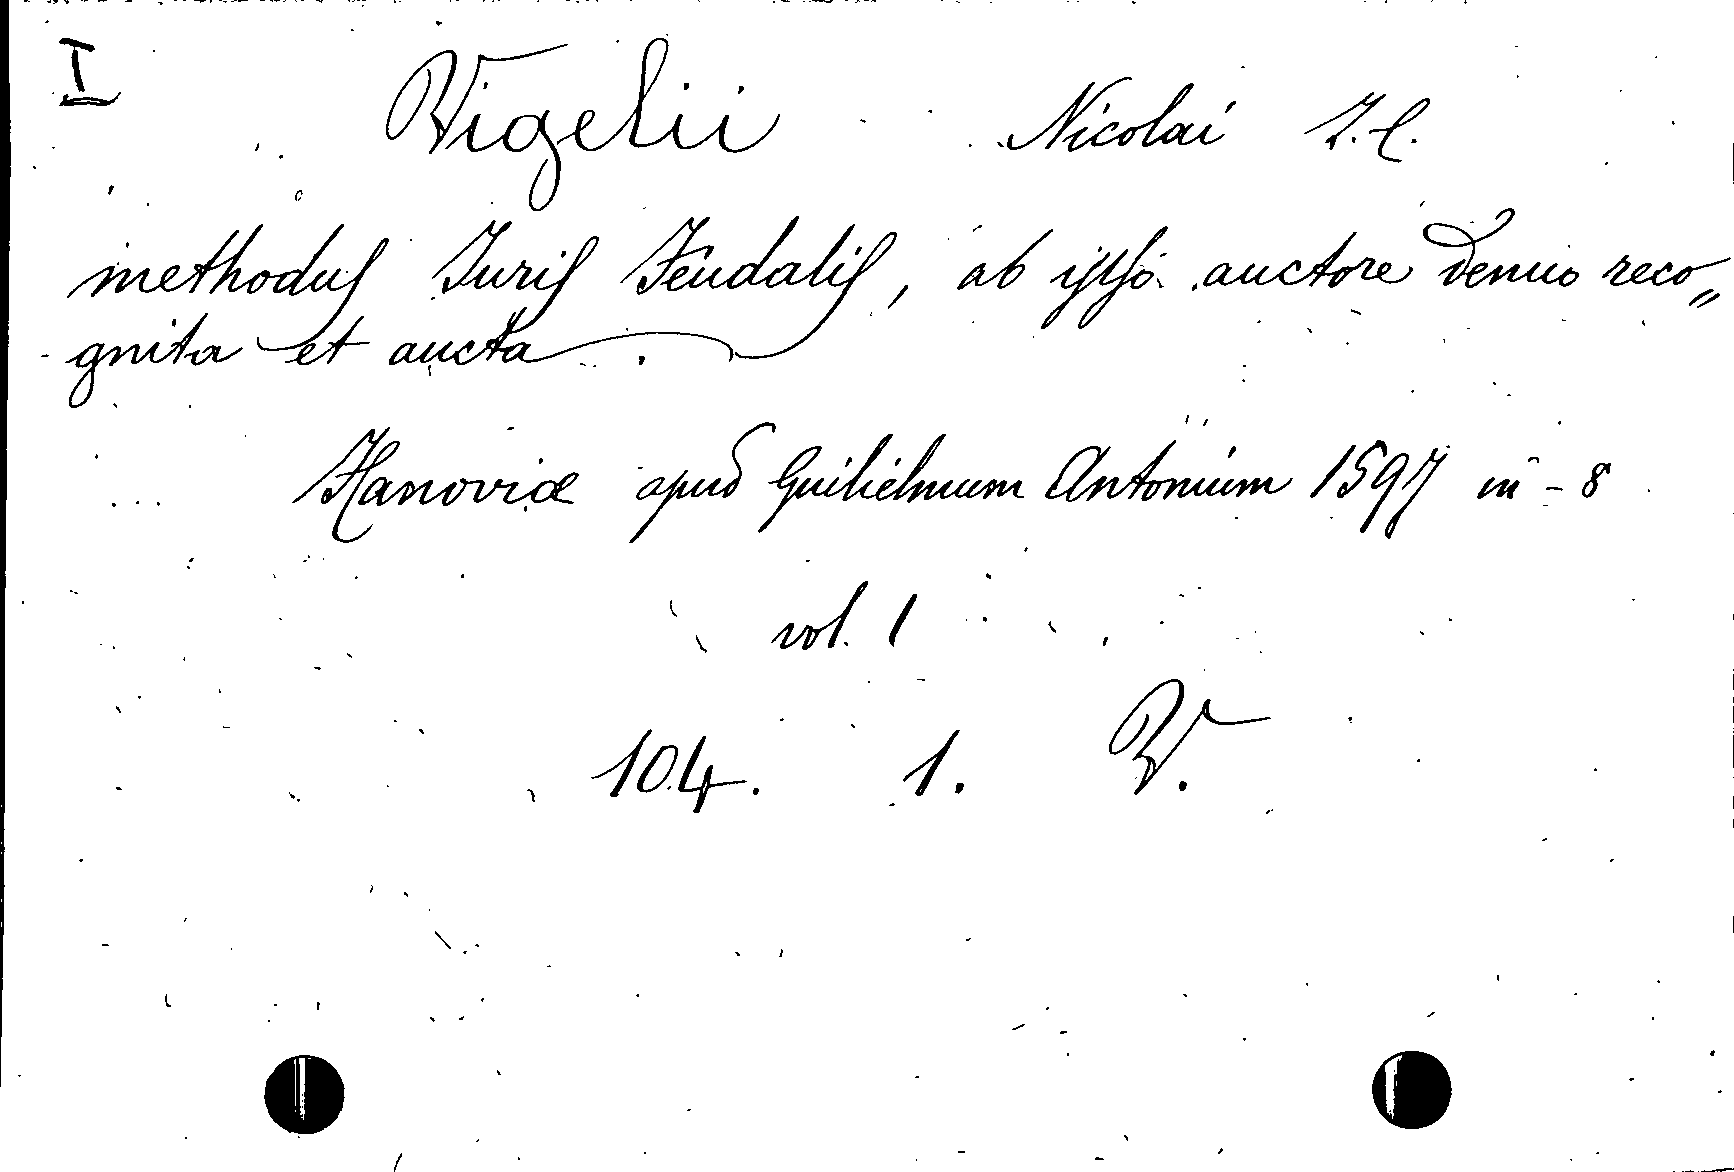 I Vigelii Nicolai I.C.
methodus Iuris Feudalis, ab ipso auctore denuo reco„
gnita et aucta.
Hanoviæ apud Guilielmum Antonium 1597 in-8
vol. 1
104. 1. V.